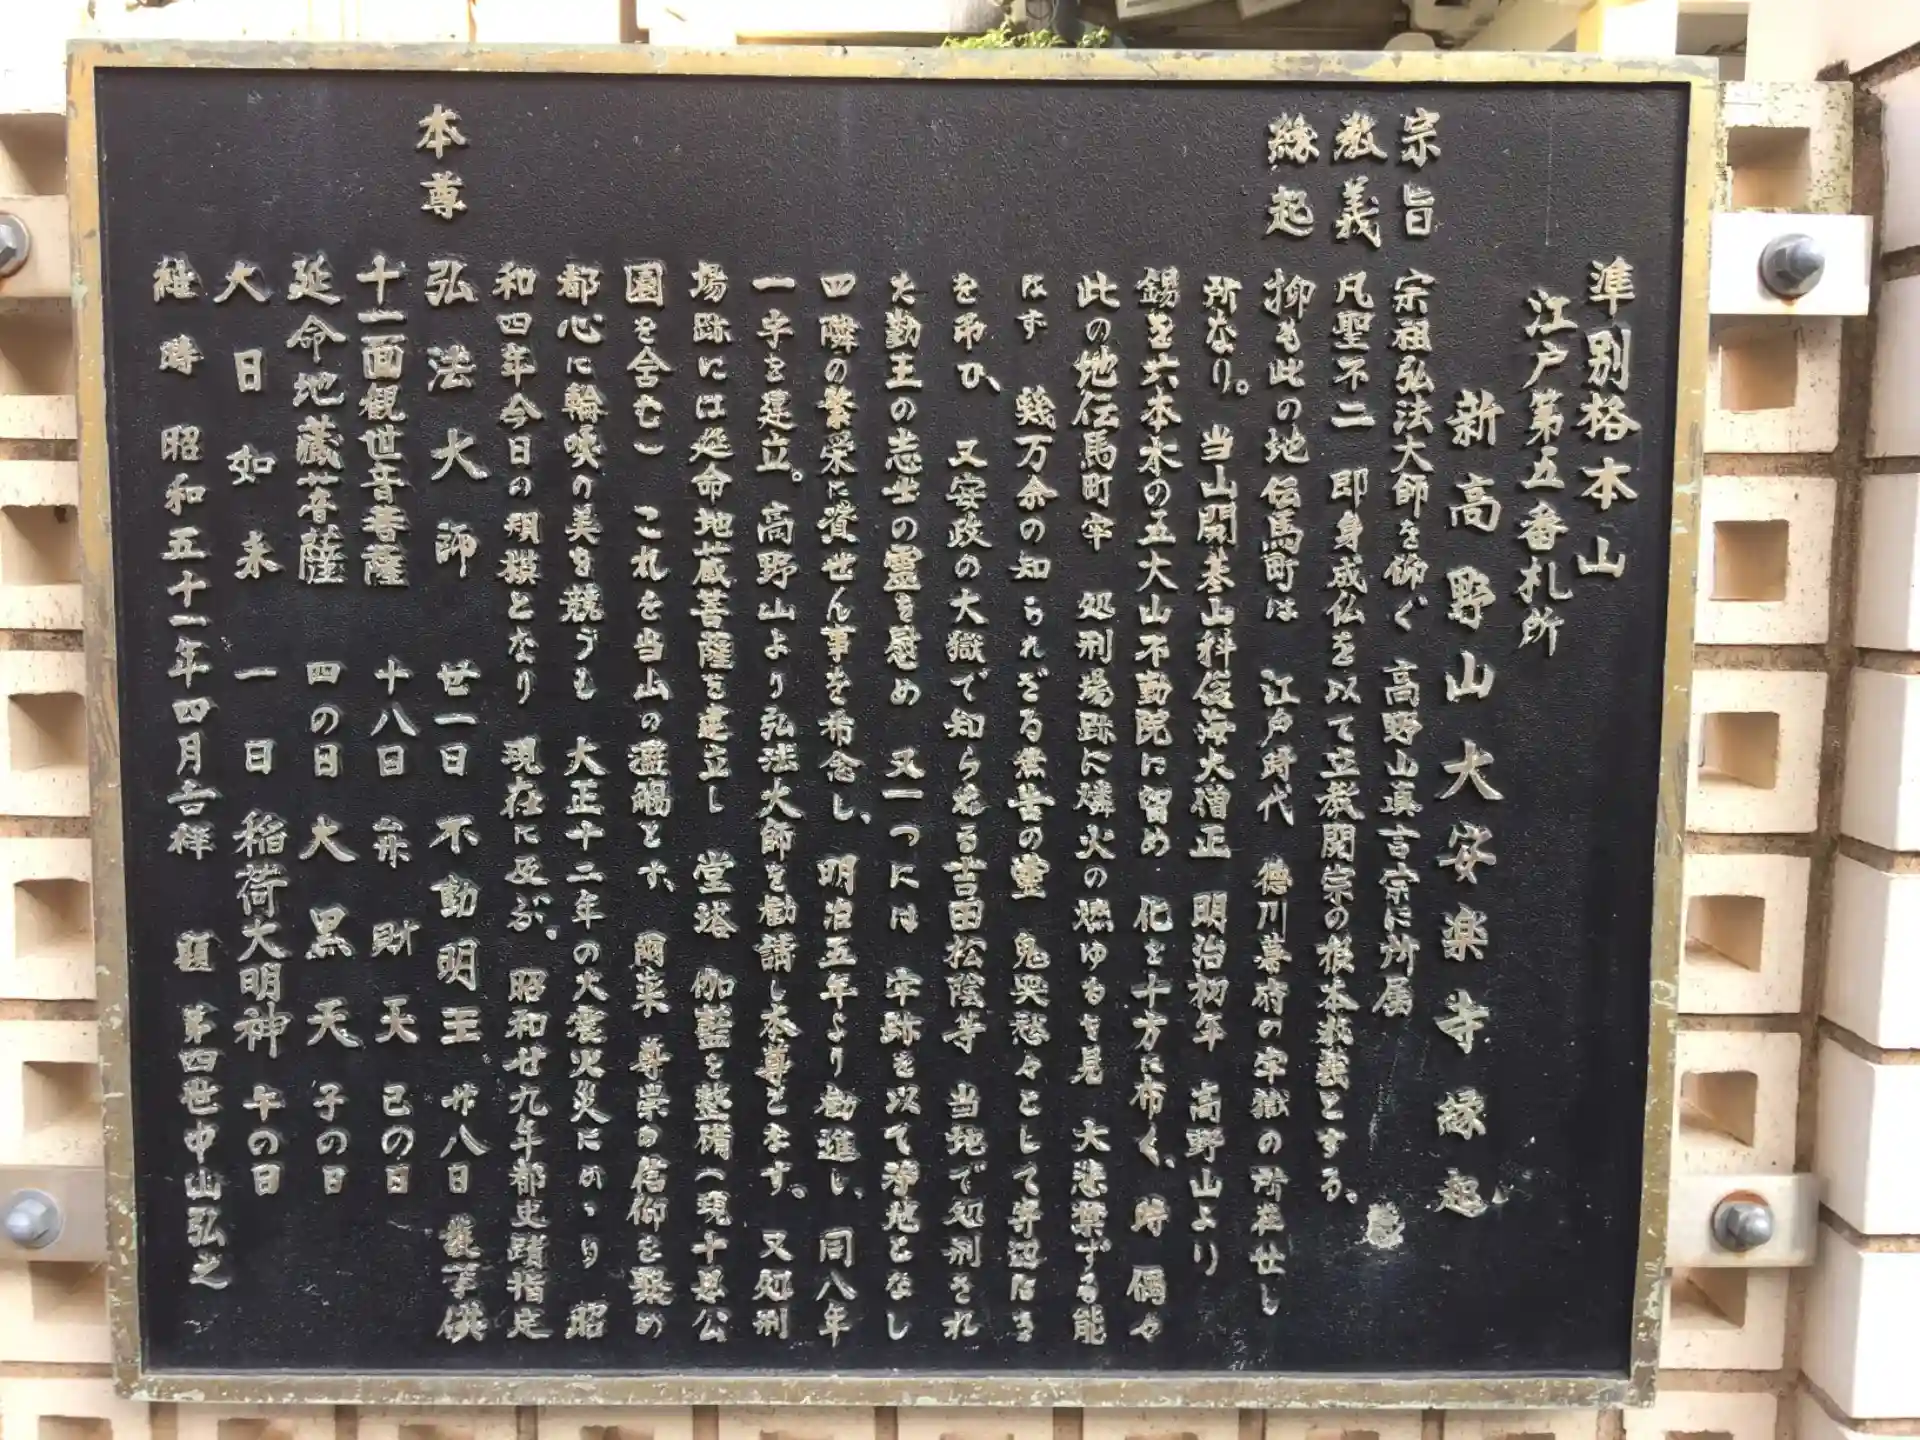 準別格本山
江戸第五番札所
新高野山大安楽寺縁起
宗旨 宗祖弘法大師を仰ぐ 高野山真言宗に所属
教義 凡聖不二 即身成仏を以て立教開宗の根本教義とする。
縁起 抑も此の地伝馬町は 江戸時代 徳川幕府の牢獄の所在せし
所なり。 当山開基山科俊海大僧正 明治初年 高野山より
錫を六本木の五大山不動院に留め 化を十方に布く、時 偶々
此の地伝馬町牢 処刑場跡に燐火の燃ゆるを見 大悲禁ずる能
はず 幾万余の知られざる無告の霊 鬼哭愁々として写辺はき
を弔ひ、 又安政の大獄で知られる吉田松陰等 当地で処刑され
た勤王の志士の霊を慰め 又一つには 牢跡を以て浄地となし
四隣の繁栄に資せん事を希念し、 明治五年より勧進し、同八年
一宇を建立。高野山より弘法大師を勧請し本尊となす。又処刑
場跡には延命地蔵菩薩を建立し 堂塔 伽藍を整備(現十思公
園を含む) これを当山の 賜とす、 尊崇の信仰を聚め
都心に輪喚の美を競うも 大正十二年の大震火災にかゝり 昭
和四年今日の規模となり 現在に及ぶ。 昭和廿九年都史蹟指定
本尊 弘法大師 廿一日 不動明王 廿八日 護摩供
十一面観世音菩薩 十八日 弁財天 巳の日
延命地蔵菩薩 四の日 大黒天 子の日
大日如来 一日 稲荷大明神 午の日
維時 昭和五十一年四月吉祥 題 第四世中山弘之